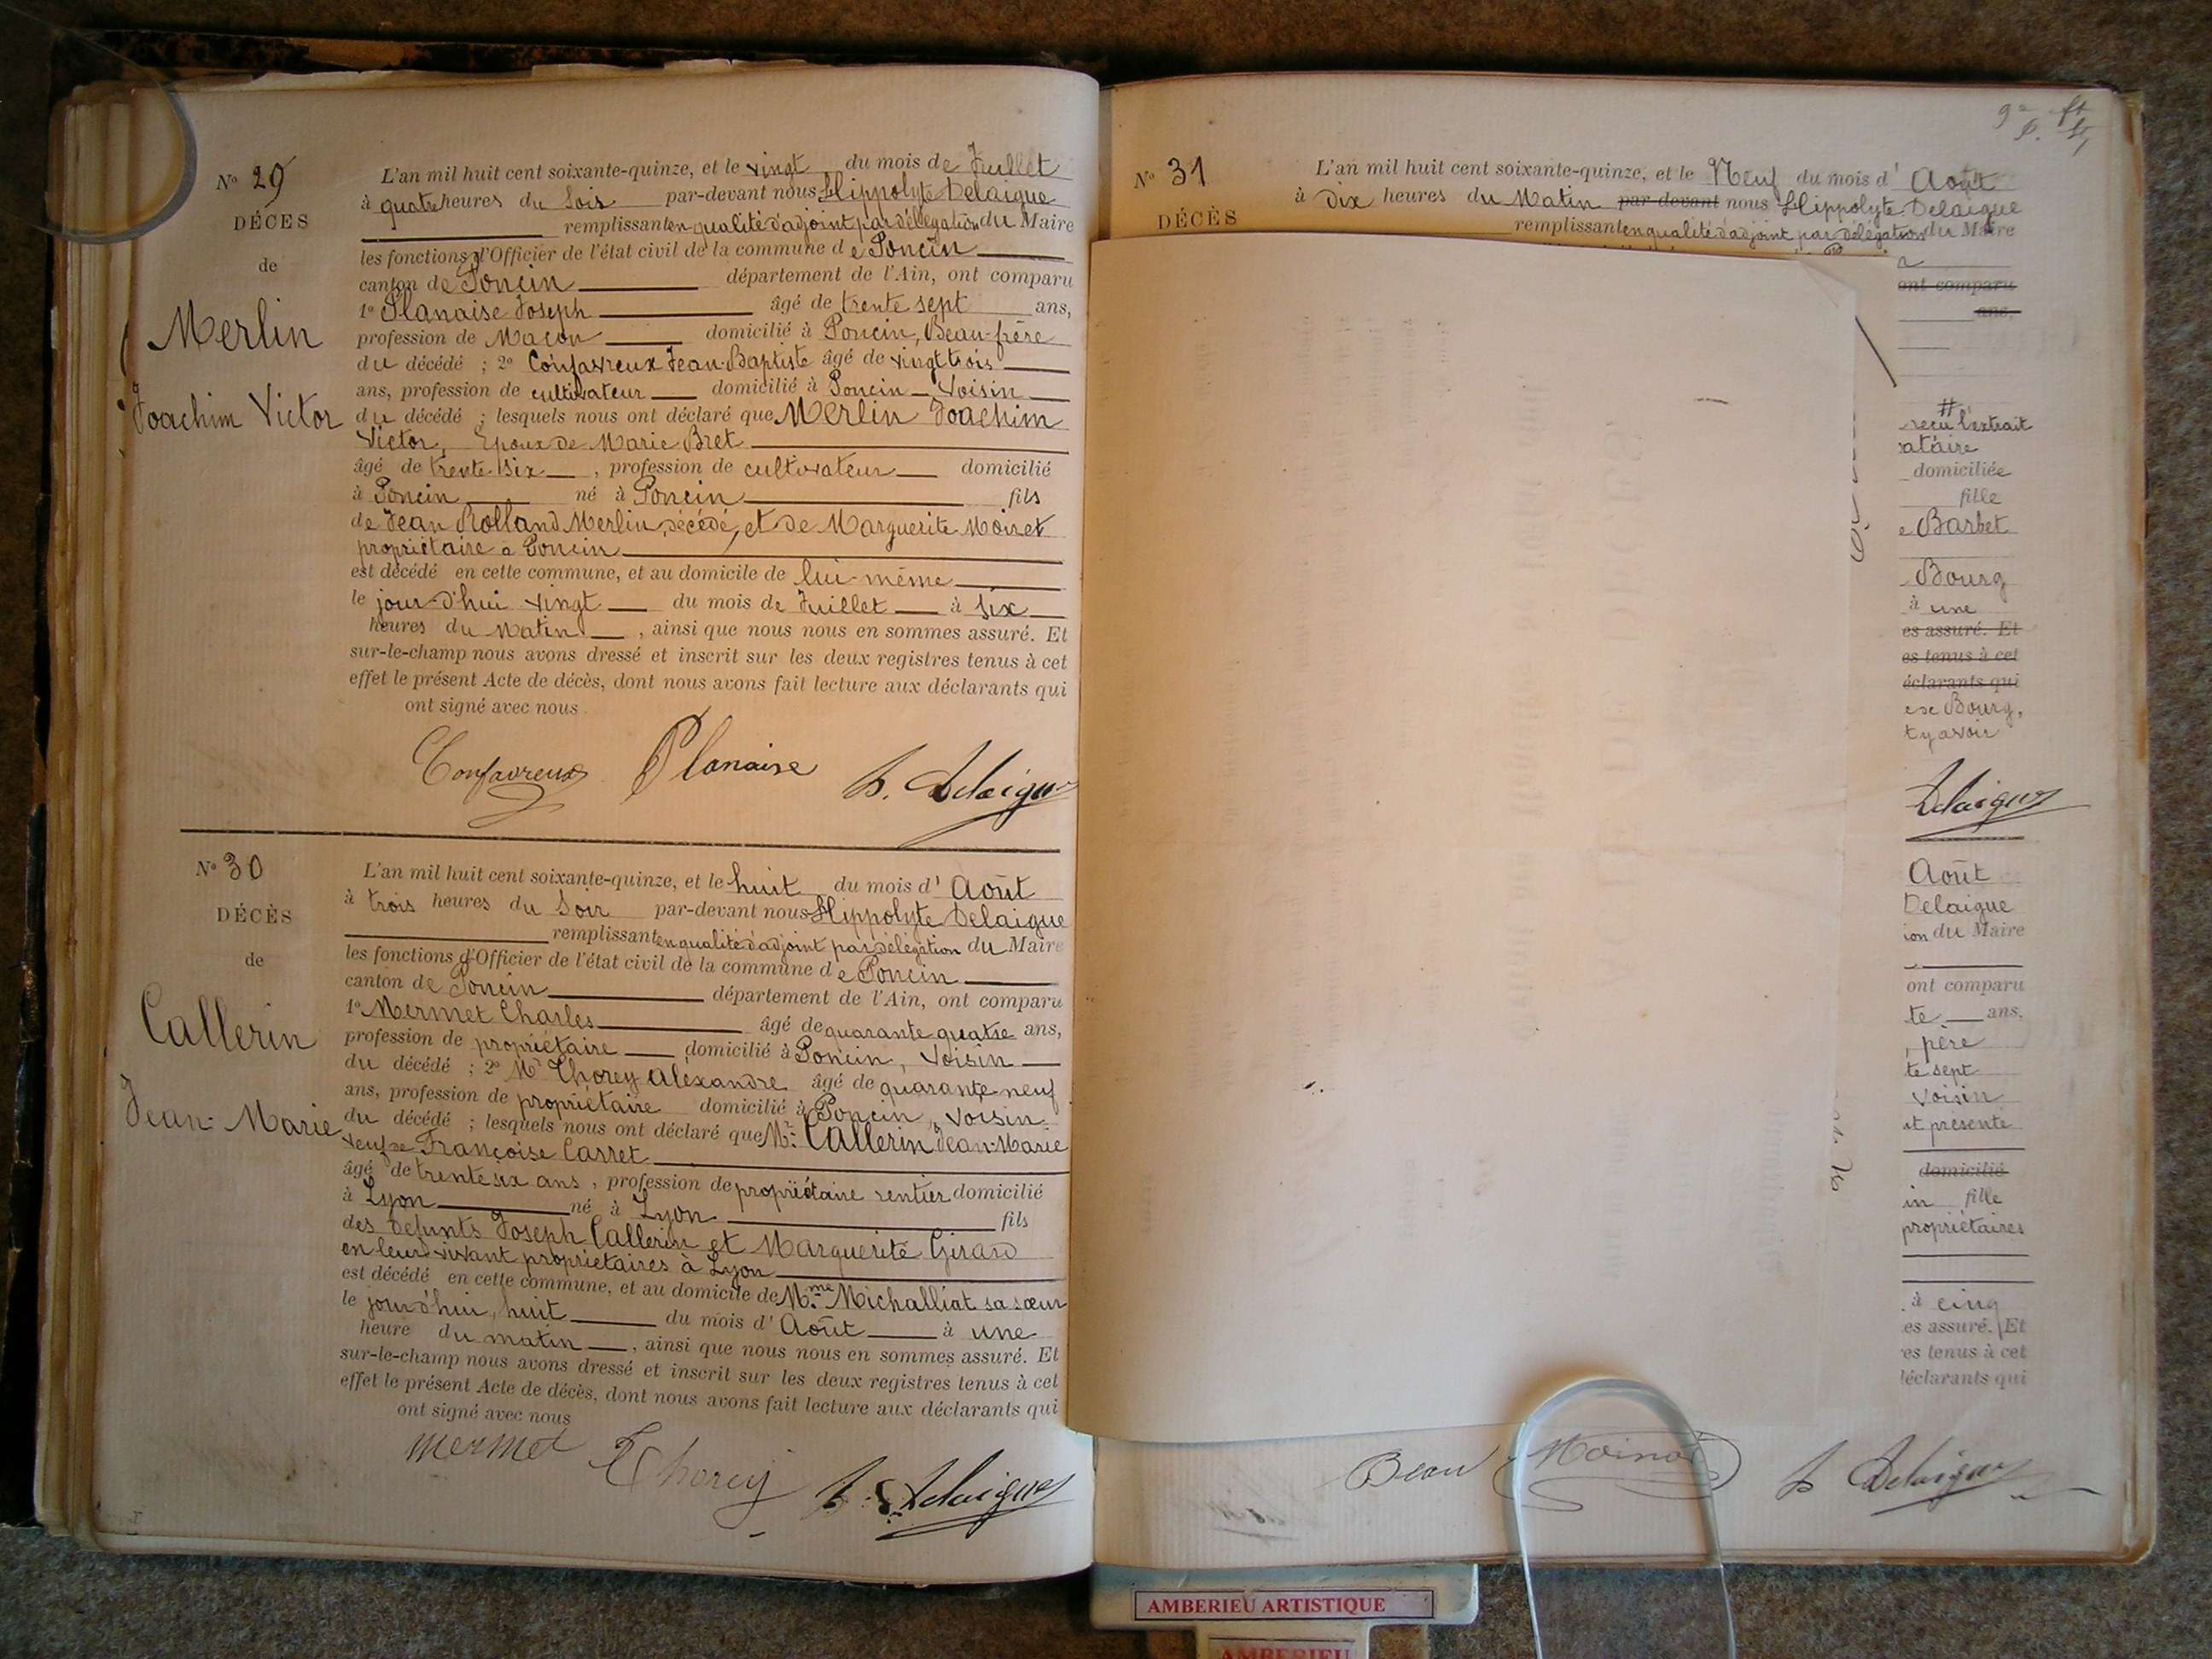 N° 29
DÉCES
de
Merlin
Joachim Victor
L'an mil huit cent soixante-quinze, et le vingt du mois de Juillet
à quatre heures du Soir par-devant nous Hippolyte Delaigue
remplissant en qualité d'adjoint par délégation du Maire
les fonctions d'Officier de l'état civil de la commune de Poncin
canton de Poncin département de l'Ain, ont comparu
1° Planaise Joseph âgé de trente sept ans,
profession de Maçon domicilié à Poncin, Beau-frère
du décédé ; 2° Confavreux Jean-Baptiste âgé de vingt trois
ans, profession de cultivateur domicilié à Poncin Voisin
du décédé ; lesquels nous ont déclaré que Merlin Joachim
Victor, Epoux de Marie Bret
âgé de trente six , profession de cultivateur domicilié
à Poncin né à Poncin fils
de Jean Rolland Merlin, décédé, et de Marguerite Moiret
propriétaire à Poncin
est décédé en cette commune, et au domicile de lui-même
le jourd'hui vingt du mois de Juillet à six
heures du Matin , ainsi que nous nous en sommes assuré. Et
sur-le-champ nous avons dressé et inscrit sur les deux registres tenus à cet
effet le présent Acte de décès, dont nous avons fait lecture aux déclarants qui
ont signé avec nous.
Confavreux Planaise h. Delaigue
N° 30
DÉCÈS
de
Callerin
Jean-Marie
L'an mil huit cent soixante-quinze, et le huit du mois d' Août
à trois heures du Soir par-devant nous Hippolyte Delaigue
remplissant en qualité d'adjoint par délégation du Maire
les fonctions d'Officier de l'état civil de la commune de Poncin
canton de Poncin département de l'Ain, ont comparu
1° Mermet Charles âgé de quarante quatre ans,
profession de propriétaire domicilié à Poncin, Voisin
du décédé ; 2° Mr Thorey Alexandre âgé de quarante neuf
ans, profession de propriétaire domicilié à Poncin, Voisin
du décédé ; lesquels nous ont déclaré que Mr. Callerin Jean-Marie
veuf de Françoise Carret
âgé de trente six ans , profession de propriétaire rentier domicilié
à Lyon né à Lyon fils
des défunts Joseph Callerin et Marguerite Girard
en leur vivant propriétaires à Lyon
est décédé en cette commune, et au domicile de Mme Michalliat sa sœur
le jourd'hui, huit du mois d' Août à une
heure du matin , ainsi que nous nous en sommes assuré. Et
sur-le-champ nous avons dressé et inscrit sur les deux registres tenus à cet
effet le présent Acte de décès, dont nous avons fait lecture aux déclarants qui
ont signé avec nous
mermet Thorey h. Delaigue
N° 31
DÉCÈS
L'an mil huit cent soixante-quinze, et le Neuf du mois d' Août
à Dix heures du Matin par-devant nous Hippolyte Delaigue
remplissant en qualité d'adjoint par délégation du Maire
ont comparu
ans,
#
reçu l'extrait
ataire
domiciliée
fille
e Barbet
Bourg
à une
es assuré. Et
es tenus à cet
éclarants qui
e de Bourg,
t y avoir
Delaigue
Août
Delaigue
ion du Maire
ont comparu
te ans,
, père
te sept
Voisin
nt présenté
domicilié
in fille
propriétaires
à cinq
es assuré. Et
es tenus à cet
déclarants qui
Beau Moinat h Delaigue
AMBERIEU ARTISTIQUE
AMBERIEU